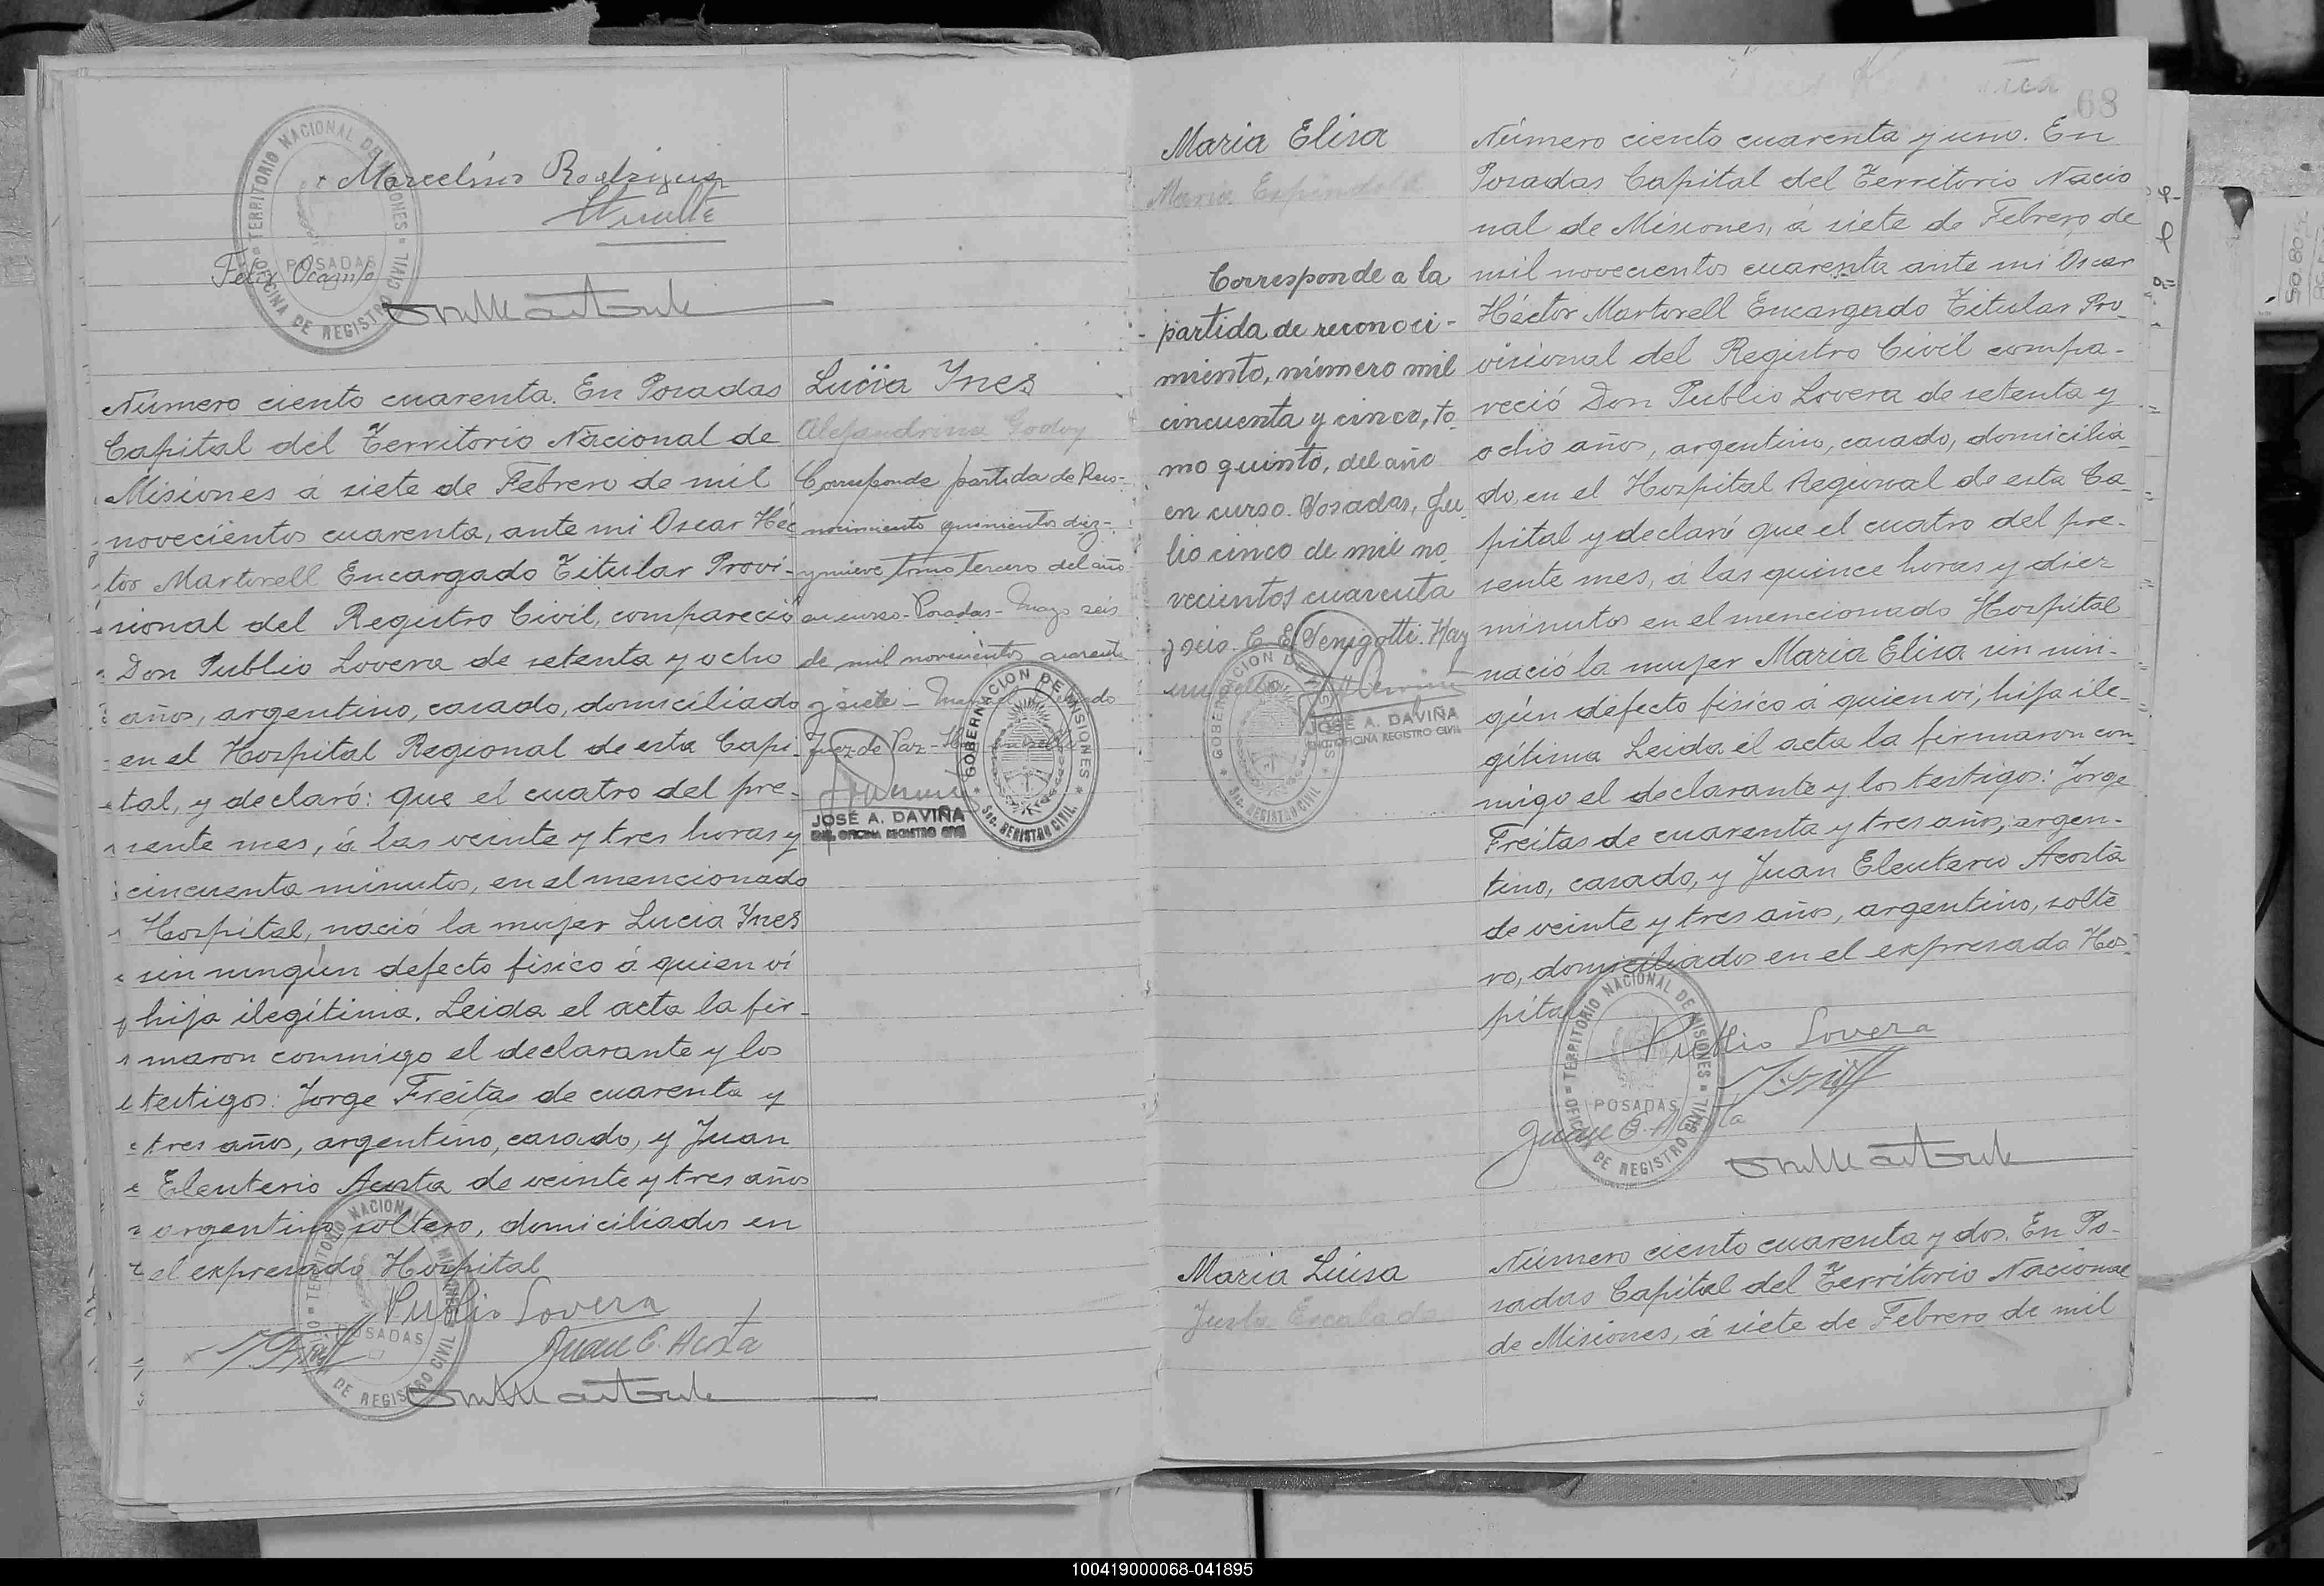 Marcelino Rodriguez
Felix Ocampo
TERRITORIO NACIONAL DE MISIONES
POSADAS
OFICINA DE REGISTRO CIVIL
Número ciento cuarenta. En Posadas
Capital del Territorio Nacional de
Misiones á siete de Febrero de mil
novecientos cuarenta, ante mi Oscar Héc
tor Martorell Encargado Titular Provi-
sional del Registro Civil, compareció
Don Publio Lovera de setenta y ocho
años, argentino, casado, domiciliado
en el Hospital Regional de esta Capi-
tal, y declaró: que el cuatro del pre-
sente mes, á las veinte y tres horas y
cincuenta minutos, en el mencionado
Hospital, nació la mujer Lucia Ynes
sin ningún defecto fisico á quien vi
hija ilegítima. Leida el acta la fir-
maron conmigo el declarante y los
testigos: Jorge Freitas de cuarenta y
tres años, argentino, casado, y Juan
Eleuterio Acosta de veinte y tres años
argentino, soltero, domiciliados en
el expresado Hospital
Publio Lovera
Juan E. Acosta
TERRITORIO NACIONAL DE MISIONES
POSADAS
OFICINA DE REGISTRO CIVIL
Lucia Ynes
Alejandrina Godoy
Corresponde partida de Reco-
nocimiento quinientos diez-
y nueve, tomo tercero del año
en curso - Posadas - Mayo seis
de mil novecientos cuarenta
y siete -
Juez de Paz - Hay un sello
JOSÉ A. DAVIÑA
ENC. OFICINA REGISTRO CIVIL
GOBERNACION DE MISIONES
Sec. REGISTRO CIVIL
68
Maria Elisa
Maria Espindola
Corresponde a la
partida de reconoci-
miento, número mil
cincuenta y cinco, to
mo quinto, del año
en curso. Posadas, Ju
lio cinco de mil no
vecientos cuarenta
y seis. C. E. Hay
un sello
JOSÉ A. DAVIÑA
ENC. OFICINA REGISTRO CIVIL
GOBERNACION DE MISIONES
Sec. REGISTRO CIVIL
Número ciento cuarenta y uno. En
Posadas Capital del Territorio Nacio
nal de Misiones, á siete de Febrero de
mil novecientos cuarenta ante mi Oscar
Héctor Martorell Encargado Titular Pro-
visional del Registro Civil compa-
reció Don Publio Lovera de setenta y
ocho años, argentino, casado, domicilia-
do, en el Hospital Regional de esta Ca-
pital y declaró que el cuatro del pre-
sente mes, á las quince horas y diez
minutos en el mencionado Hospital
nació la mujer Maria Elisa sin nin-
gún defecto fisico á quien vi, hija ile-
gítima Leida el acta la firmaron con-
migo el declarante y los testigos: Jorge
Freitas de cuarenta y tres años, argen-
tino, casado, y Juan Eleuterio Acosta
de veinte y tres años, argentino, solte
ro, domiciliados en el expresado Hos-
pital
Publio Lovera
Juan E. Acosta
TERRITORIO NACIONAL DE MISIONES
POSADAS
OFICINA DE REGISTRO CIVIL
Maria Luisa
Justa Escalada
Número ciento cuarenta y dos. En Po-
sadas Capital del Territorio Nacional
de Misiones, á siete de Febrero de mil
100419000068-041895